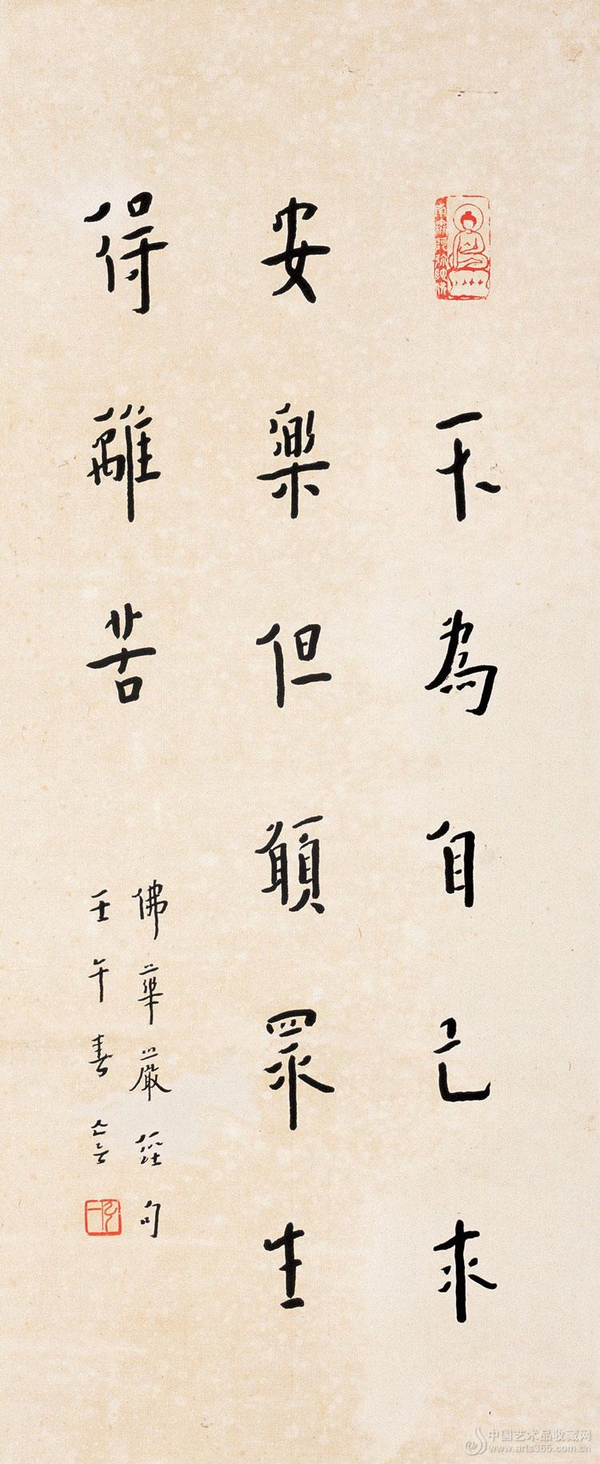 不為自己求
安樂但願眾生
得離苦
佛華嚴經句
壬午春亡言
弘一
中国艺术品收藏网
www.arts365.com.cn